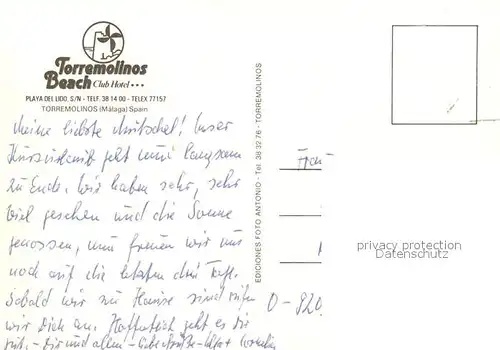 Torremolinos
Beach Club Hotel ***
PLAYA DEL LIDO, S/N - TELF. 38 14 00 - TELEX 77157
TORREMOLINOS (Málaga) Spain
Meine liebste Mutschel! Unser
Kurzurlaub geht nun langsam
zu Ende. Wir haben sehr, sehr
viel gesehen und die Sonne
genossen, nun freuen wir uns
noch auf die letzten drei Tage.
Sobald wir zu Hause sind rufen
wir Dich an. Hoffentlich geht es Dir
gut - Dir und allen - liebe Grüße -
EDICIONES FOTO ANTONIO - Tel. 38 32 76 - TORREMOLINOS
Frau
D-820
privacy protection
Datenschutz